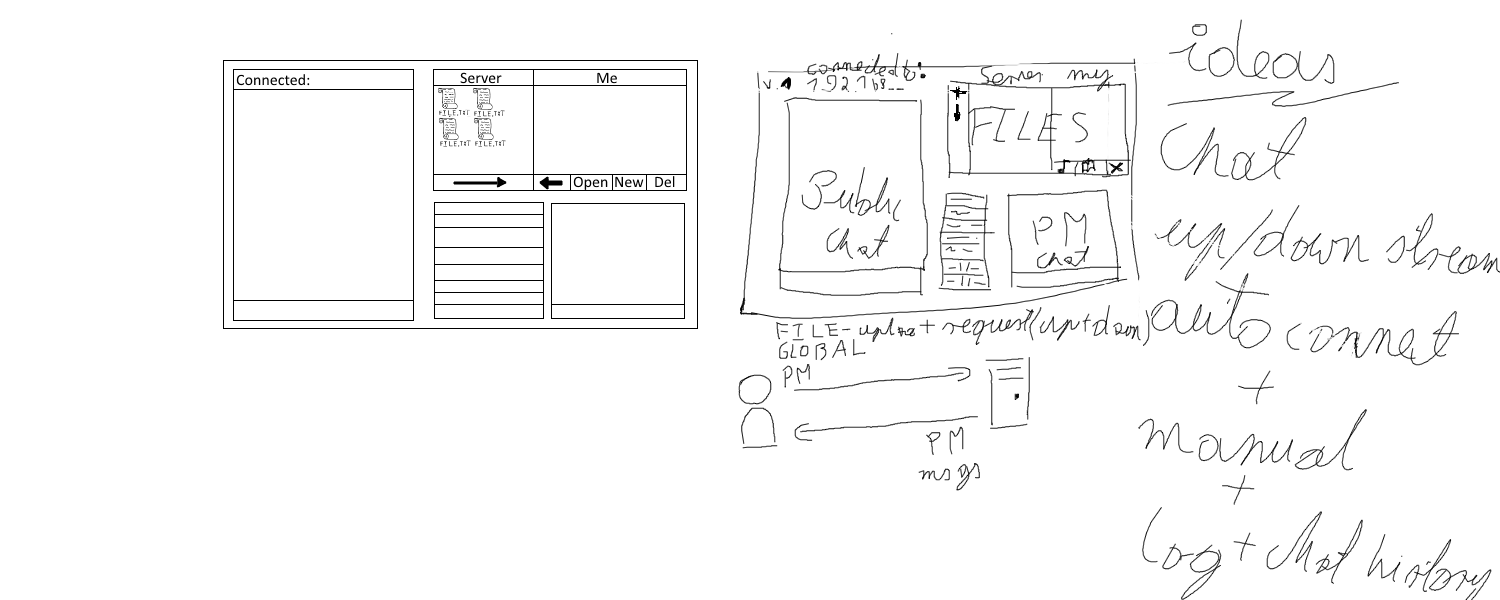 Connected:
Server Me
FILE,TXT FILE,TXT
FILE,TXT FILE,TXT
Open New Del
connected to:
lv.1 192.168__
Server my
FILES
Public
chat
PM
chat
FILE- + request(up+down)
GLOBAL
PM
PM
msgs
ideas
chat
up/down stream
auto connect
+
manual
+
log + chat history